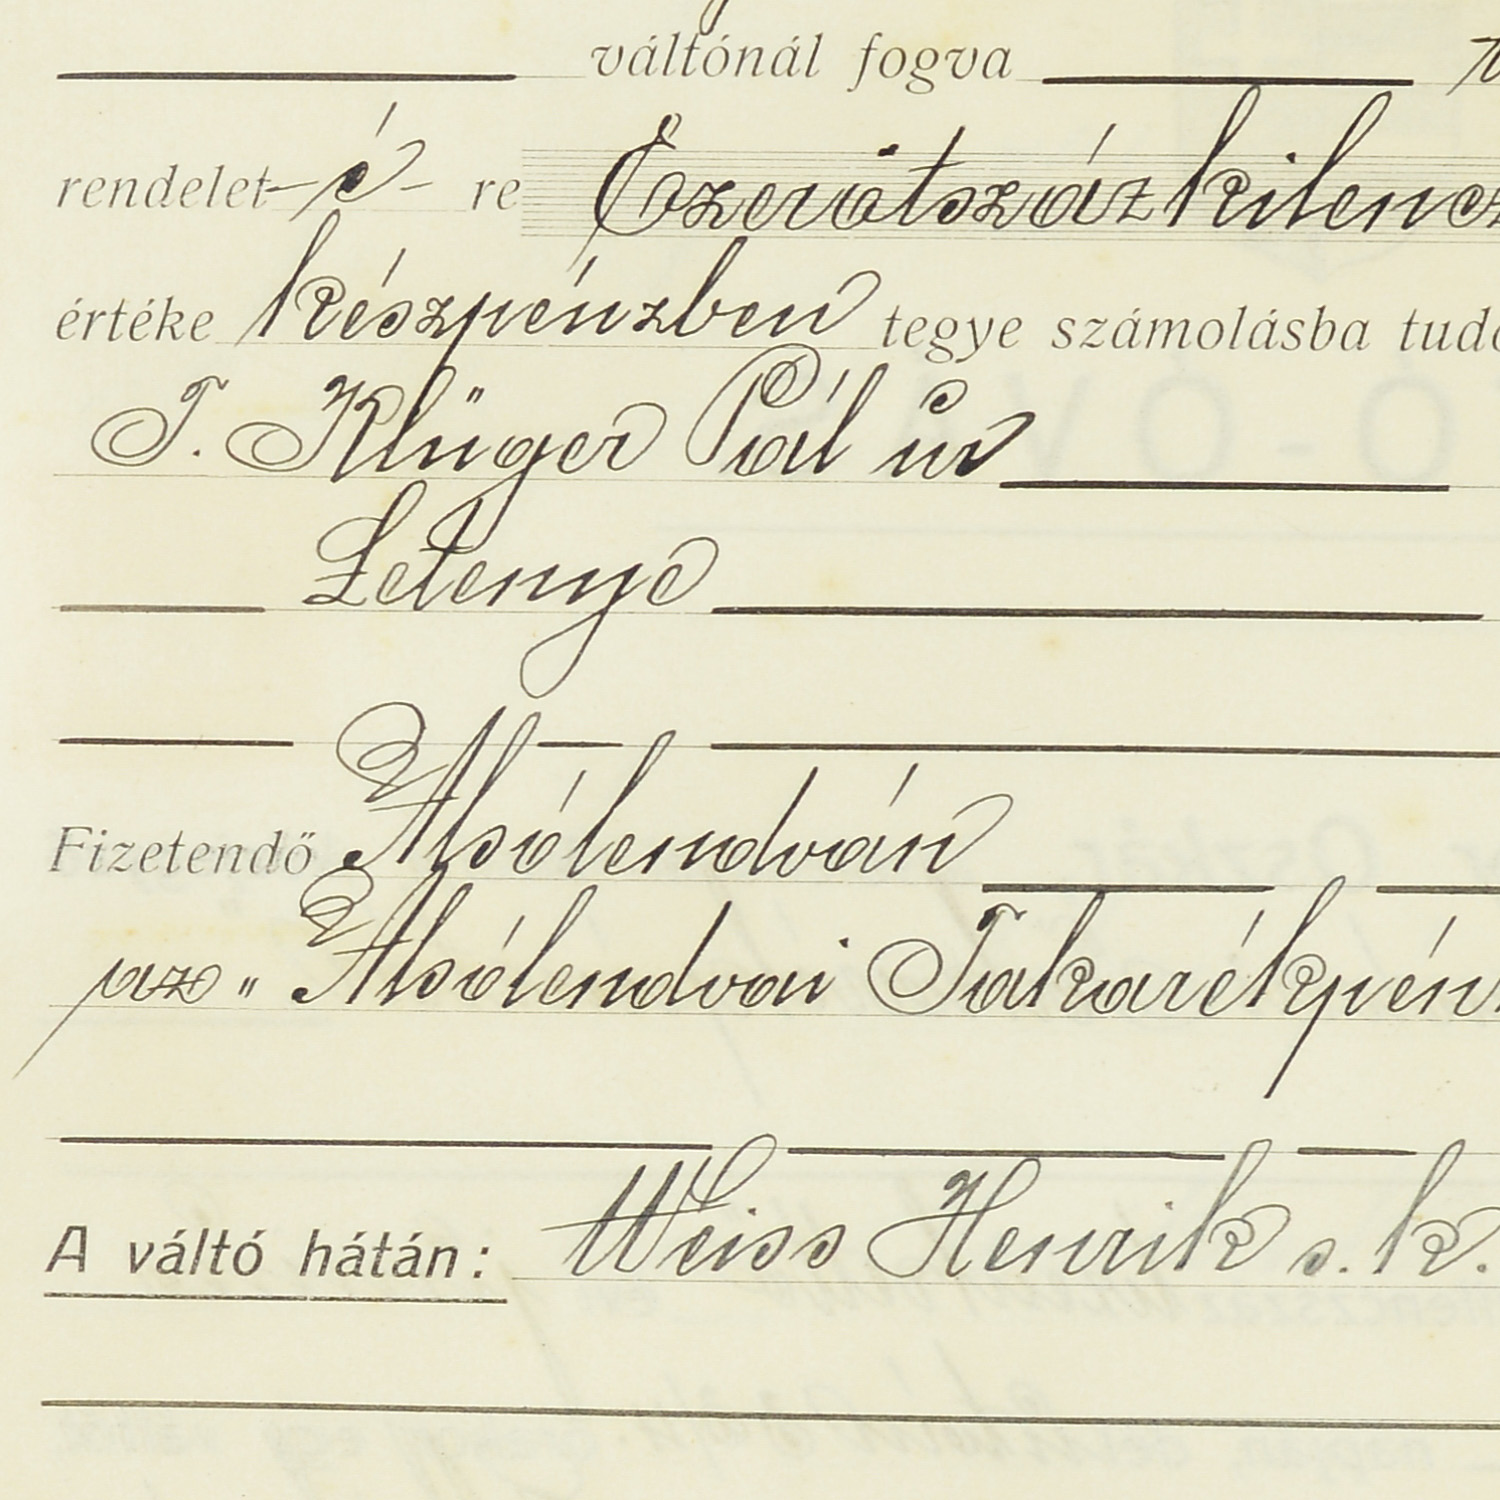 váltónál fogva
rendelet -é- re Ezerötszázkilencz
értéke készpénzben tegye számolásba
T. Klüger Pál úr
Letenye
Fizetendő Alsólendván
az „ Alsólendvai Takarékpénz
A váltó hátán: Weiss Henrik s. k.